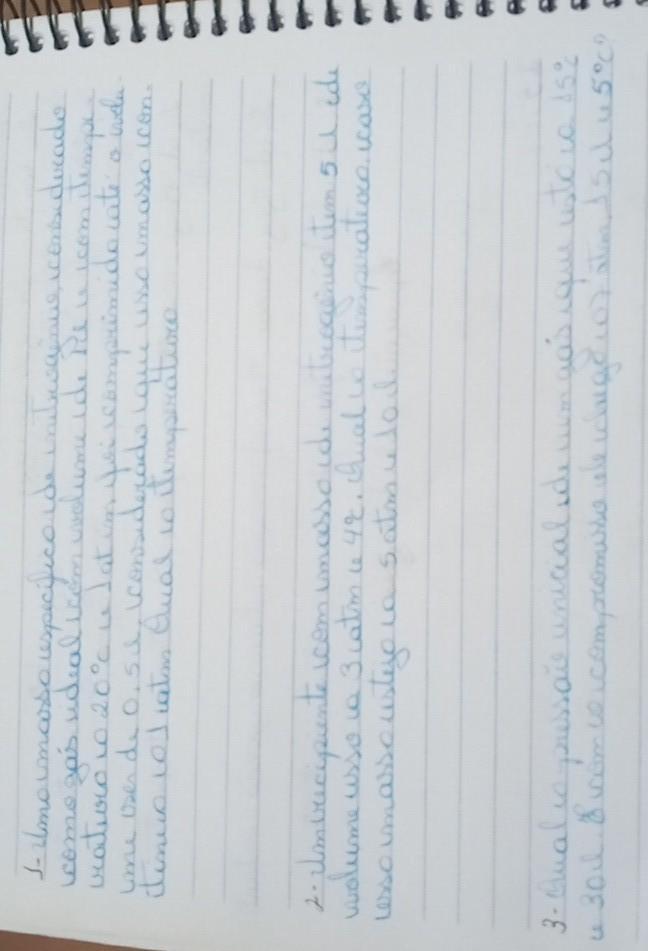 1- Uma massa específica de nitrogênio, considerado
como gás ideal com volume de 1l e com tempe-
ratura a 20°C e 1 atm, foi comprimida até o volu-
me ser de 0,5 l, considerado que essa massa con-
tinua a 1 atm Qual a temperatura
2- Um recipiente com massa de nitrogênio tem 5 l de
volume isso a 3 atm e 42. Qual a temperatura caso
essa massa esteja a 5 atm e 10 l.
3- Qual a pressão inicial de um gás que está a 15°C
e 30 l e vem a ser 7 atm, 15 l e 5°C?